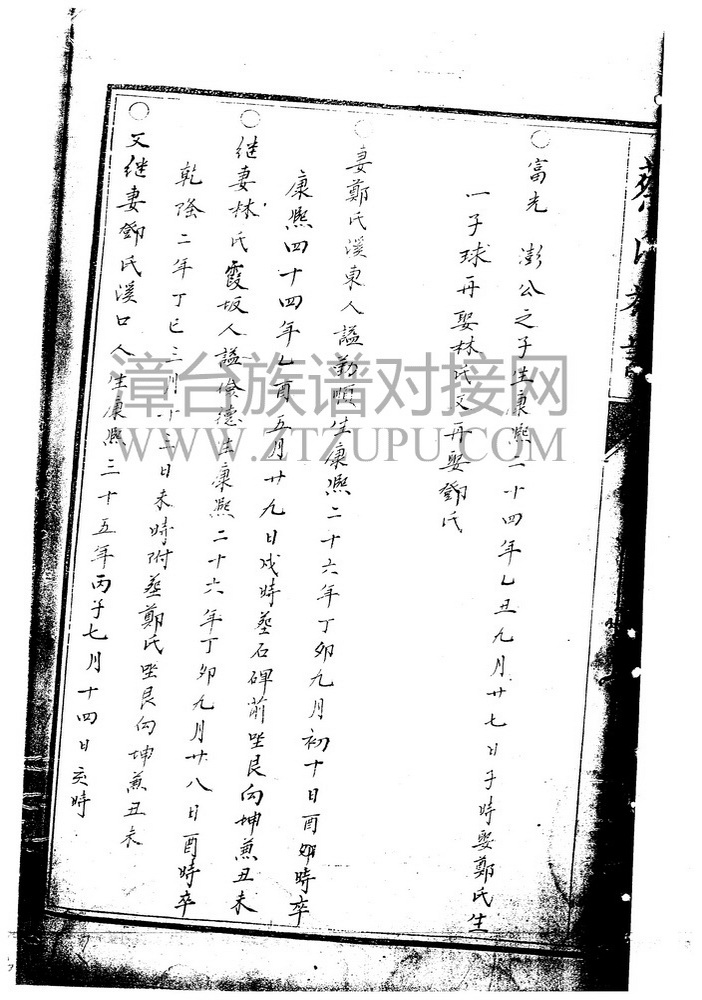 富光 澎公之子生康熙二十四年乙丑九月廿七日子時娶鄭氏生
一子球再娶林氏又再娶鄧氏
妻鄭氏溪東人謚勤順生康熙二十六年丁卯九月初十日酉時卒
康熙四十四年乙酉五月廿九日戌時塟石碑前坐艮向坤兼丑未
继妻林氏霞坂人謚儉德生康熙二十六年丁卯九月廿八日酉時卒
乾隆二年丁巳三月十三日未時附塟鄭氏坐艮向坤兼丑未
又继妻鄧氏溪口人生康熙三十五年丙子七月十四日亥時
漳台族谱对接网
WWW.ZTZUPU.COM